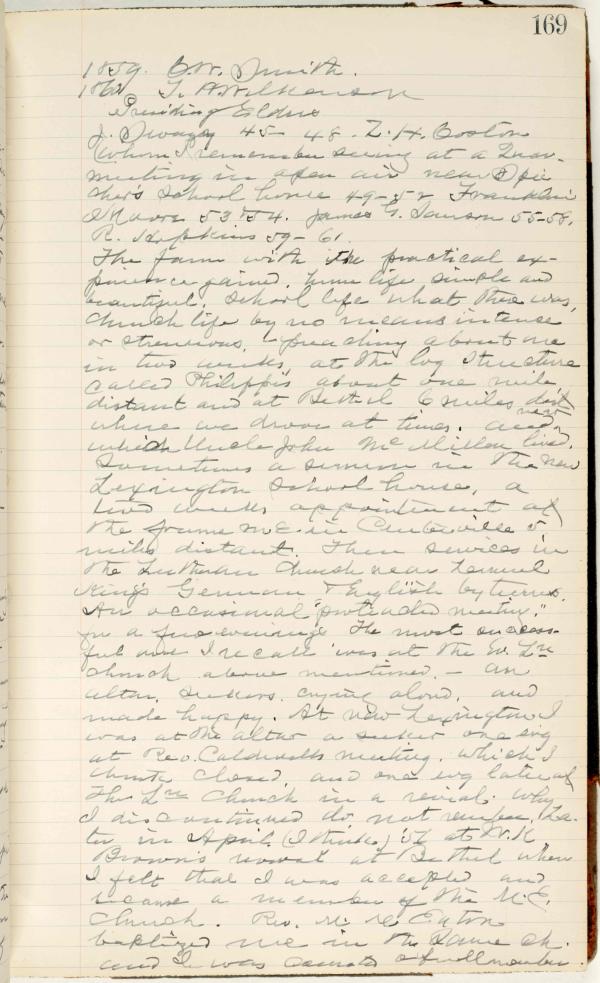 169
1859. B.W. Smith.
1861 T. A. Wilkenson
Presiding Elders
J. Swayzy 45- 48. Z. H. Coston
(whom I remember seeing at a Quar.
meeting in open air near Spi
cher's School house 49-52 Franklin
Moore 53 & 54. James G. Sanson 55-58.
R. Hopkins 59- 61
The farm with its practical ex-
perience gained, home life simple and
beautiful, school life what there was,
church life by no means intense
or strenuous, - preaching about one
in two weeks, at the log structure
called Philippi, about one mile
distant and at Bethel 6 miles dist
where we drove at times, and near
which Uncle John McMillen lived.
Sometimes a sermon in the New
Lexington School house, a
two weeks appointment at
the frame M.E. in Centerville 5
miles distant. Then services in
the Lutheran Church near Lemuel
King's German & English by turns.
An occasional "protracted meeting,"
for a few evenings. The most success-
ful one I recall was at the Ev. Ln
church above mentioned - an
altar, seekers, crying aloud, and
made happy. At New Lexington I
was at the altar a seeker one evg
at Rev. Caldwell's meeting, which I
think closed, and one evg later at
the Ln Church in a revival. Why
I discontinued do not remember. La-
ter in April (I think) 56 at W. K
Brown's revival at Bethel when
I felt that I was accepted and
became a member of the M.E.
Church. Rev. M. Eaton
baptized me in the same ch.
and I was a full member